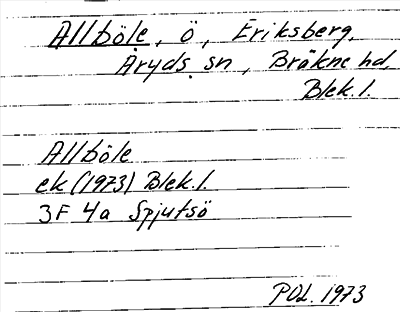 Allböle, ö, Eriksberg,
Åryds sn, Bräkne hd,
Blek. l.
Allböle
ek (1973) Blek. l.
3F 4a Spjutsö
POL. 1973